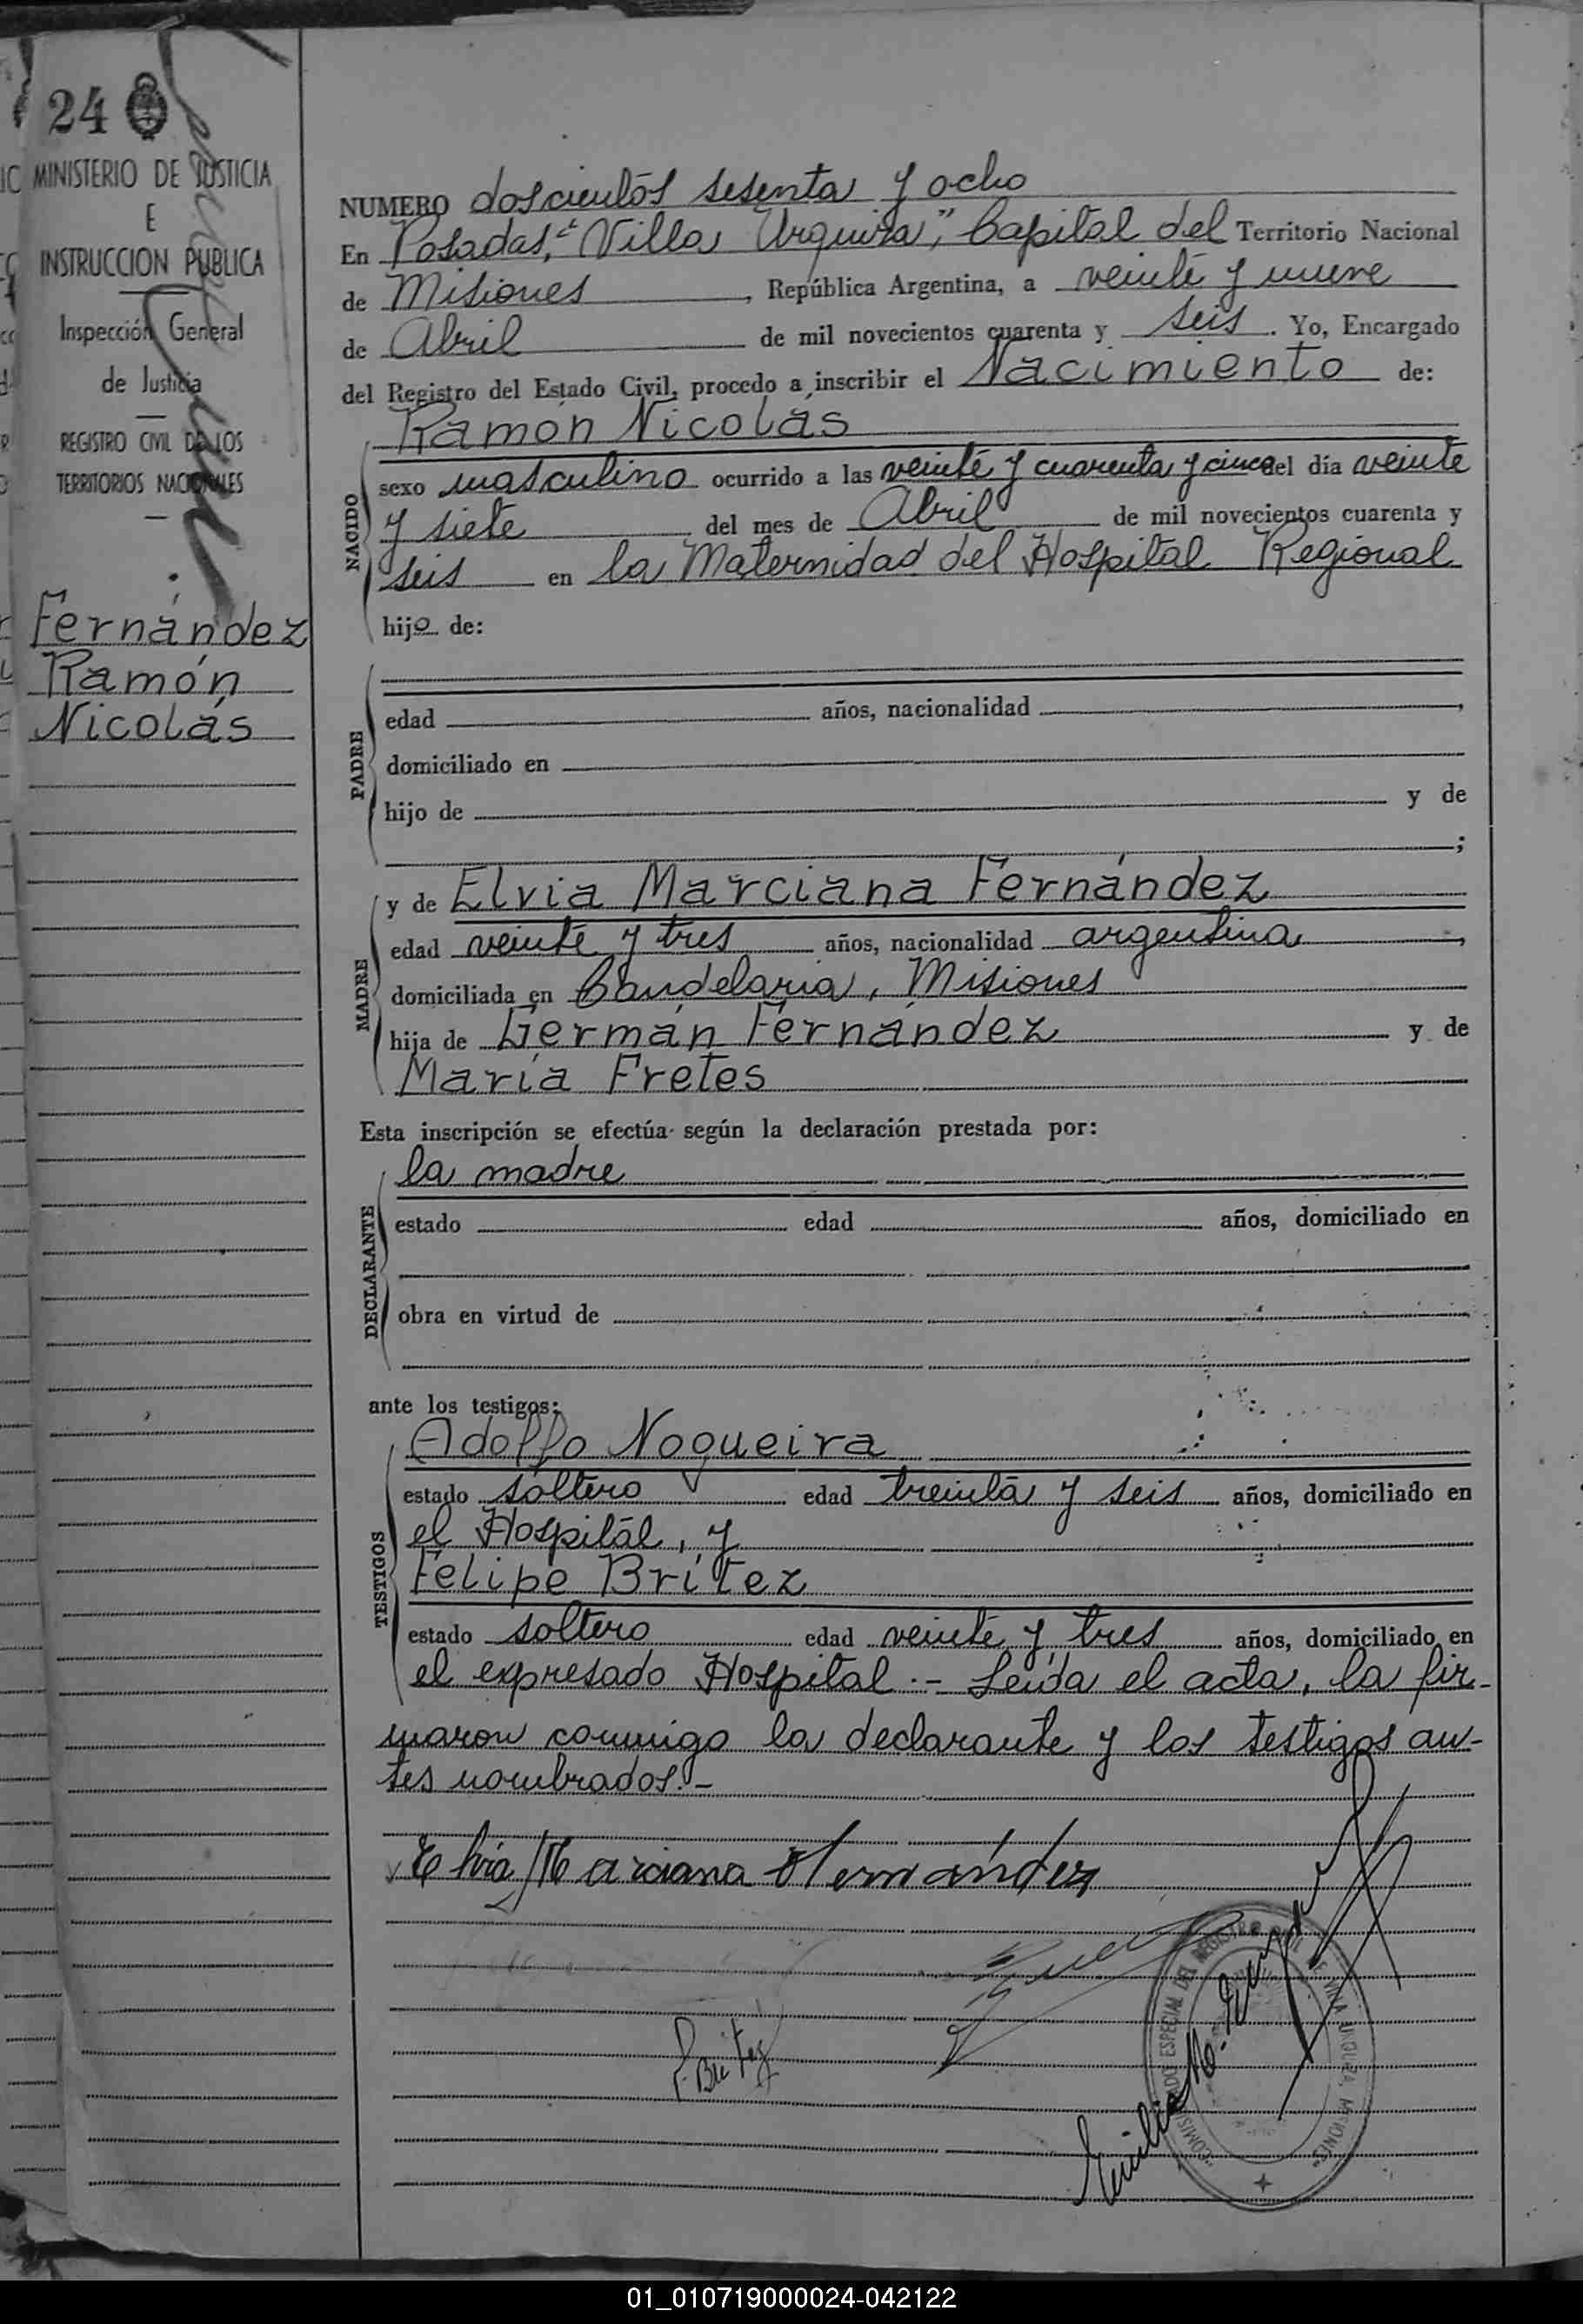 24
MINISTERIO DE JUSTICIA
E
INSTRUCCION PUBLICA
Inspección General
de Justicia
REGISTRO CIVIL DE LOS
TERRITORIOS NACIONALES
Fernández
Ramón
Nicolás
NUMERO doscientos sesenta y ocho
En Posadas, "Villa Urquiza", Capital del Territorio Nacional
de Misiones, República Argentina, a veinte y nueve
de Abril de mil novecientos cuarenta y seis. Yo, Encargado
del Registro del Estado Civil, procedo a inscribir el Nacimiento de:
Ramón Nicolás
NACIDO
sexo masculino ocurrido a las veinte y cuarenta y cinco del día veinte
y siete del mes de Abril de mil novecientos cuarenta y
seis en la Maternidad del Hospital Regional
hijo de:
PADRE
edad años, nacionalidad ,
domiciliado en
hijo de y de
;
MADRE
y de Elvia Marciana Fernández
edad veinte y tres años, nacionalidad argentina,
domiciliada en Candelaria, Misiones
hija de Germán Fernández y de
María Fretes
Esta inscripción se efectúa según la declaración prestada por:
DECLARANTE
la madre
estado edad años, domiciliado en
obra en virtud de
ante los testigos:
TESTIGOS
Adolfo Nogueira
estado soltero edad treinta y seis años, domiciliado en
el Hospital, y
Felipe Brítez
estado soltero edad veinte y tres años, domiciliado en
el expresado Hospital.- Leída el acta, la fir-
maron conmigo la declarante y los testigos an-
tes nombrados.-
Elvia Marciana Fernández
F. Britez
Emilio
COMISARIADO ESPECIAL DEL REGISTRO CIVIL DE VILLA URQUIZA, MISIONES
01_010719000024-042122